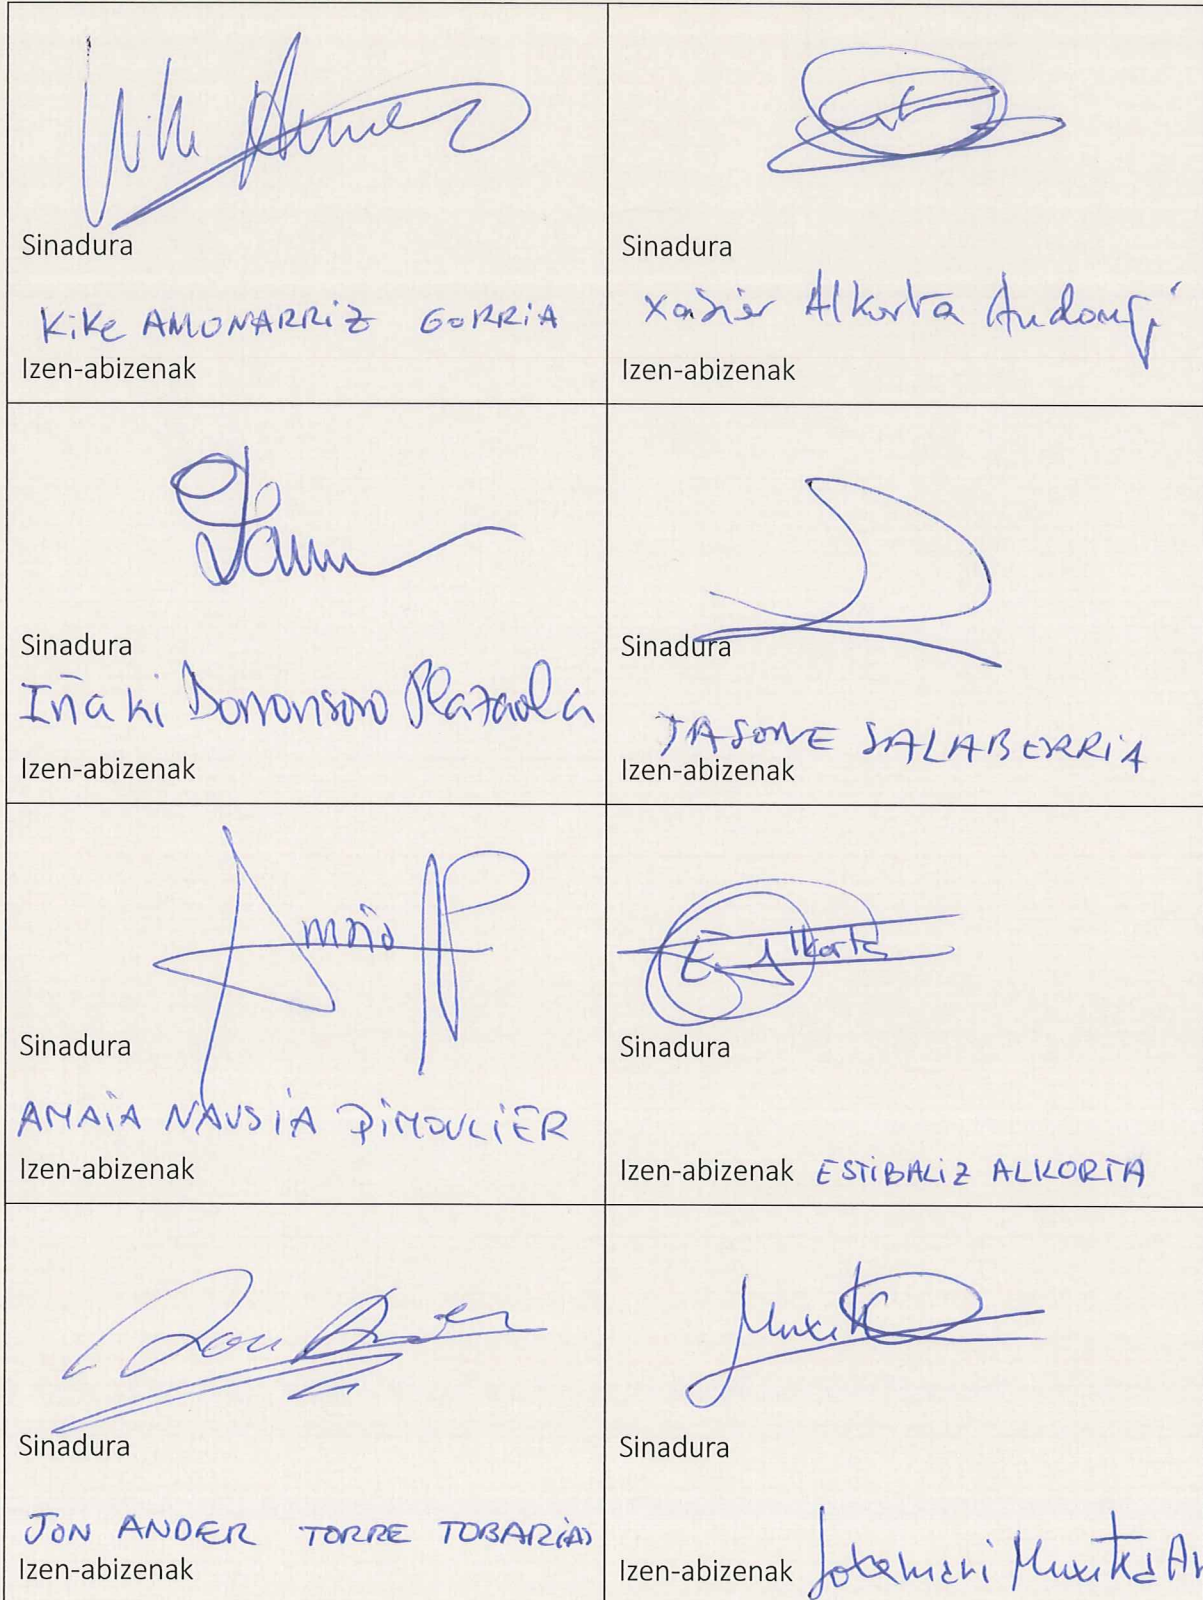 Sinadura
Kike AMONARRIZ GORRIA
Izen-abizenak
Sinadura
Xabier Alkorta
Izen-abizenak
Sinadura
Iñaki Dorronsoro Plazaola
Izen-abizenak
Sinadura
JASONE SALABERRIA
Izen-abizenak
Amaia
Sinadura
AMAIA NAUSIA PIMOULIER
Izen-abizenak
E. Alkorta
Sinadura
Izen-abizenak ESTIBALIZ ALKORTA
Jon Ander
Sinadura
JON ANDER TORRE TOBARIAS
Izen-abizenak
Muxika
Sinadura
Izen-abizenak Muxika